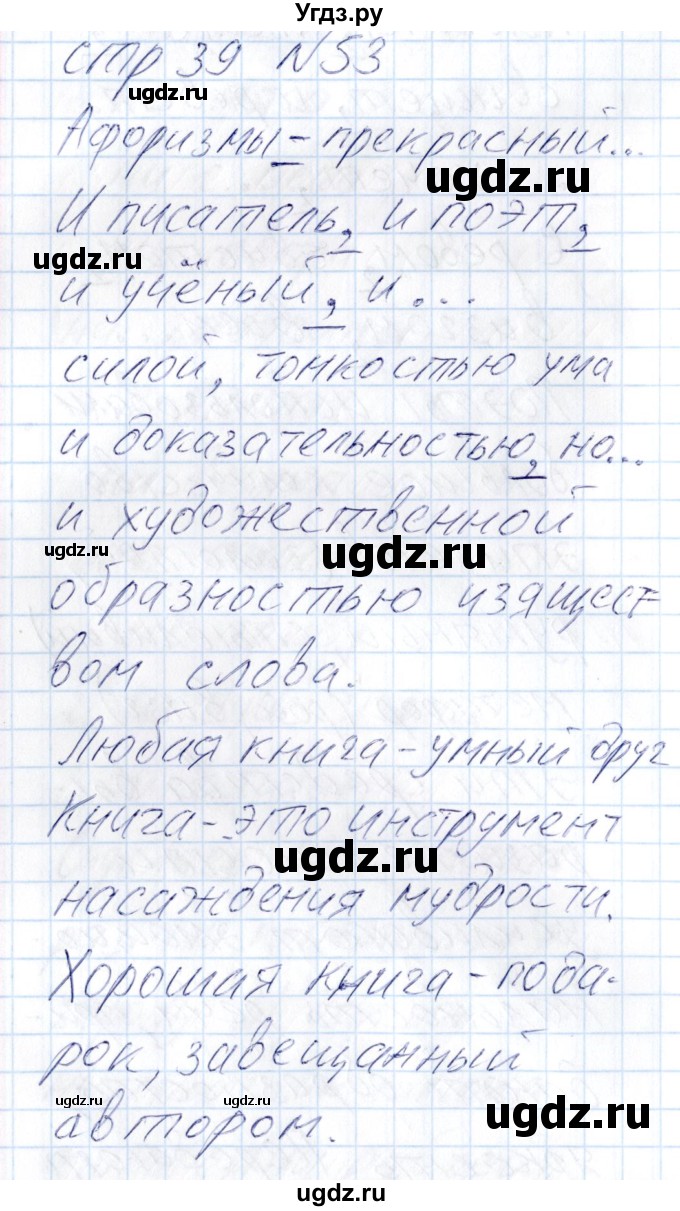 Угдз.ру
стр 39 №53
ugdz.ru
Афоризмы - прекрасный...
ugdz.ru
И писатель, и поэт,
ugdz.ru
и учёный, и ...
силой, тонкостью ума
и доказательностью, но...
и художественной
ugdz.ru
ugdz.ru
образностью изящест-
вом слова.
Любая книга - умный друг
Книга - это инструмент
ugdz.ru
насаждения мудрости.
Хорошая книга - пода-
рок, завещанный
ugdz.ru ugdz.ru ugdz.ru
автором.
ugdz.ru